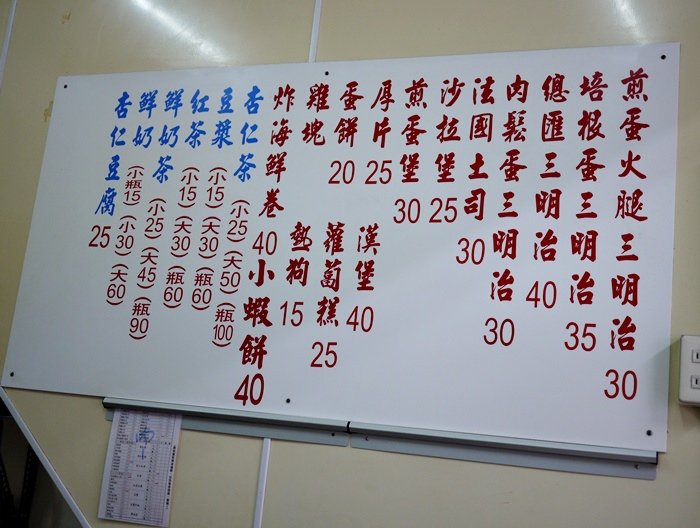 煎蛋火腿三明治 30
培根蛋三明治 35
總匯三明治 40
肉鬆蛋三明治 30
法國土司 30
沙拉堡 25
煎蛋堡 30
厚片 25
漢堡 40
蛋餅 20
蘿蔔糕 25
雞塊
熱狗 15
炸海鮮卷 40
小蝦餅 40
杏仁茶 (小25) (大50) (瓶100)
豆漿 (小15) (大30) (瓶60)
紅茶 (小15) (大30) (瓶60)
鮮奶茶 (小25) (大45) (瓶90)
鮮奶 (小瓶15) (小30) (大60)
杏仁豆腐 25